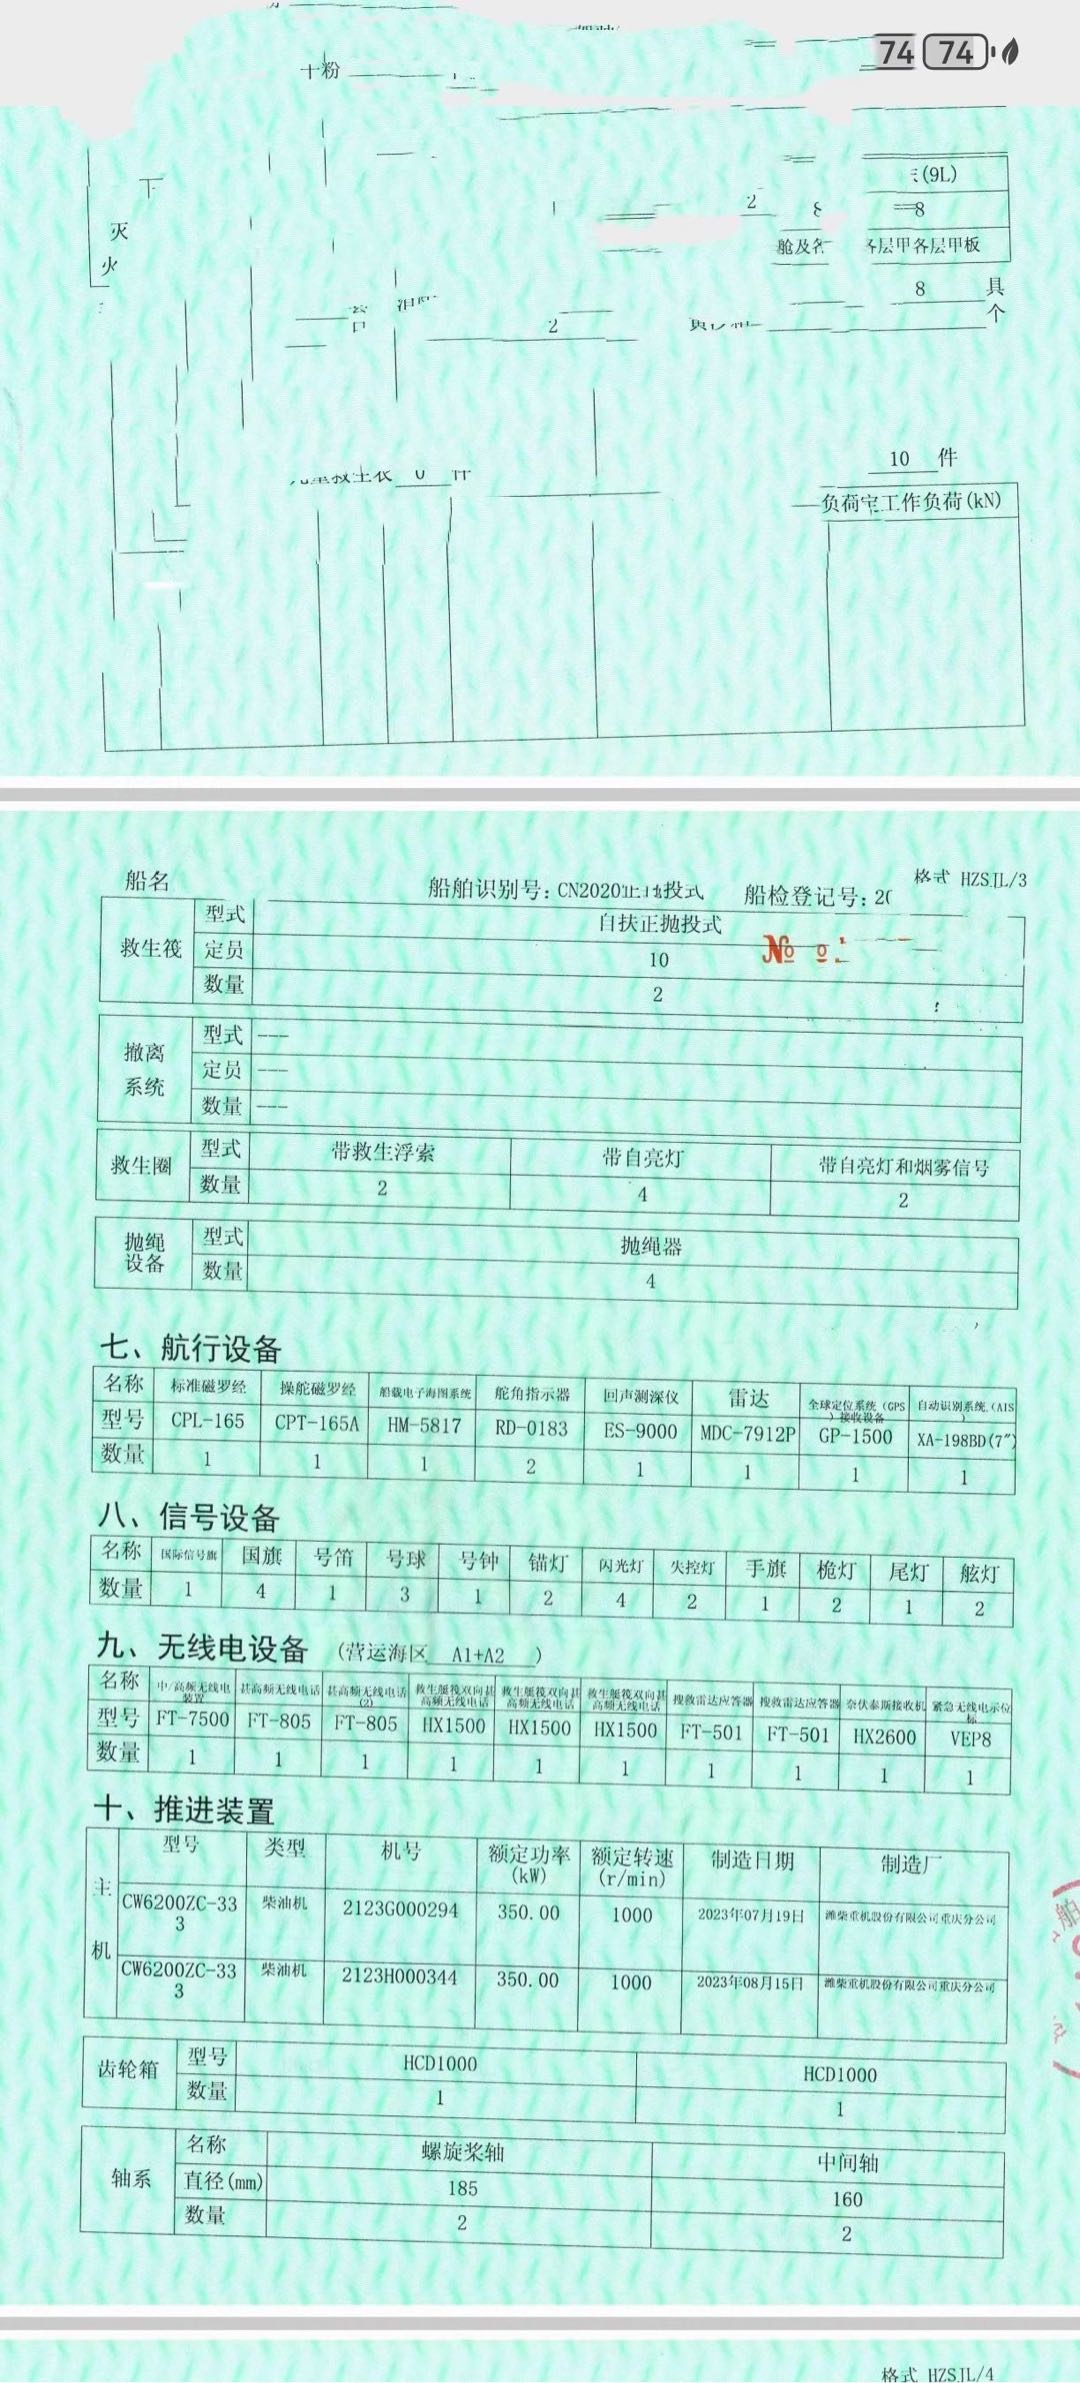 74 74
十粉
(9L)
下
2 8 8
灭
舱及各 各层甲各层甲板
火
8 具
2 个
儿童救生衣 0 件
10 件
负荷 工作负荷(kN)
格式 HZSJL/3
船名 船舶识别号: CN2020 正抛投式 船检登记号: 20
救生筏 型式 自扶正抛投式
定员 10
№ 0
数量 2
撤离系统 型式 ---
定员 ---
数量 ---
救生圈 型式 带救生浮索 带自亮灯 带自亮灯和烟雾信号
数量 2 4 2
抛绳设备 型式 抛绳器
数量 4
七、航行设备
名称 标准磁罗经 操舵磁罗经 船载电子海图系统 舵角指示器 回声测深仪 雷达 全球定位系统（GPS）接收设备 自动识别系统（AIS）
型号 CPL-165 CPT-165A HM-5817 RD-0183 ES-9000 MDC-7912P GP-1500 XA-198BD(7")
数量 1 1 1 2 1 1 1 1
八、信号设备
名称 国际信号旗 国旗 号笛 号球 号钟 锚灯 闪光灯 失控灯 手旗 桅灯 尾灯 舷灯
数量 1 4 1 3 1 2 4 2 1 2 1 2
九、无线电设备 （营运海区 A1+A2 ）
名称 中/高频无线电装置 甚高频无线电话 甚高频无线电话(2) 救生艇筏双向甚高频无线电话 救生艇筏双向甚高频无线电话 救生艇筏双向甚高频无线电话 搜救雷达应答器 搜救雷达应答器 奈伏泰斯接收机 紧急无线电示位标
型号 FT-7500 FT-805 FT-805 HX1500 HX1500 HX1500 FT-501 FT-501 HX2600 VEP8
数量 1 1 1 1 1 1 1 1 1 1
十、推进装置
主机 型号 类型 机号 额定功率(kW) 额定转速(r/min) 制造日期 制造厂
CW6200ZC-333 柴油机 2123G000294 350.00 1000 2023年07月19日 潍柴重机股份有限公司重庆分公司
CW6200ZC-333 柴油机 2123H000344 350.00 1000 2023年08月15日 潍柴重机股份有限公司重庆分公司
齿轮箱 型号 HCD1000 HCD1000
数量 1 1
轴系 名称 螺旋桨轴 中间轴
直径(mm) 185 160
数量 2 2
船
格式 HZSJL/4